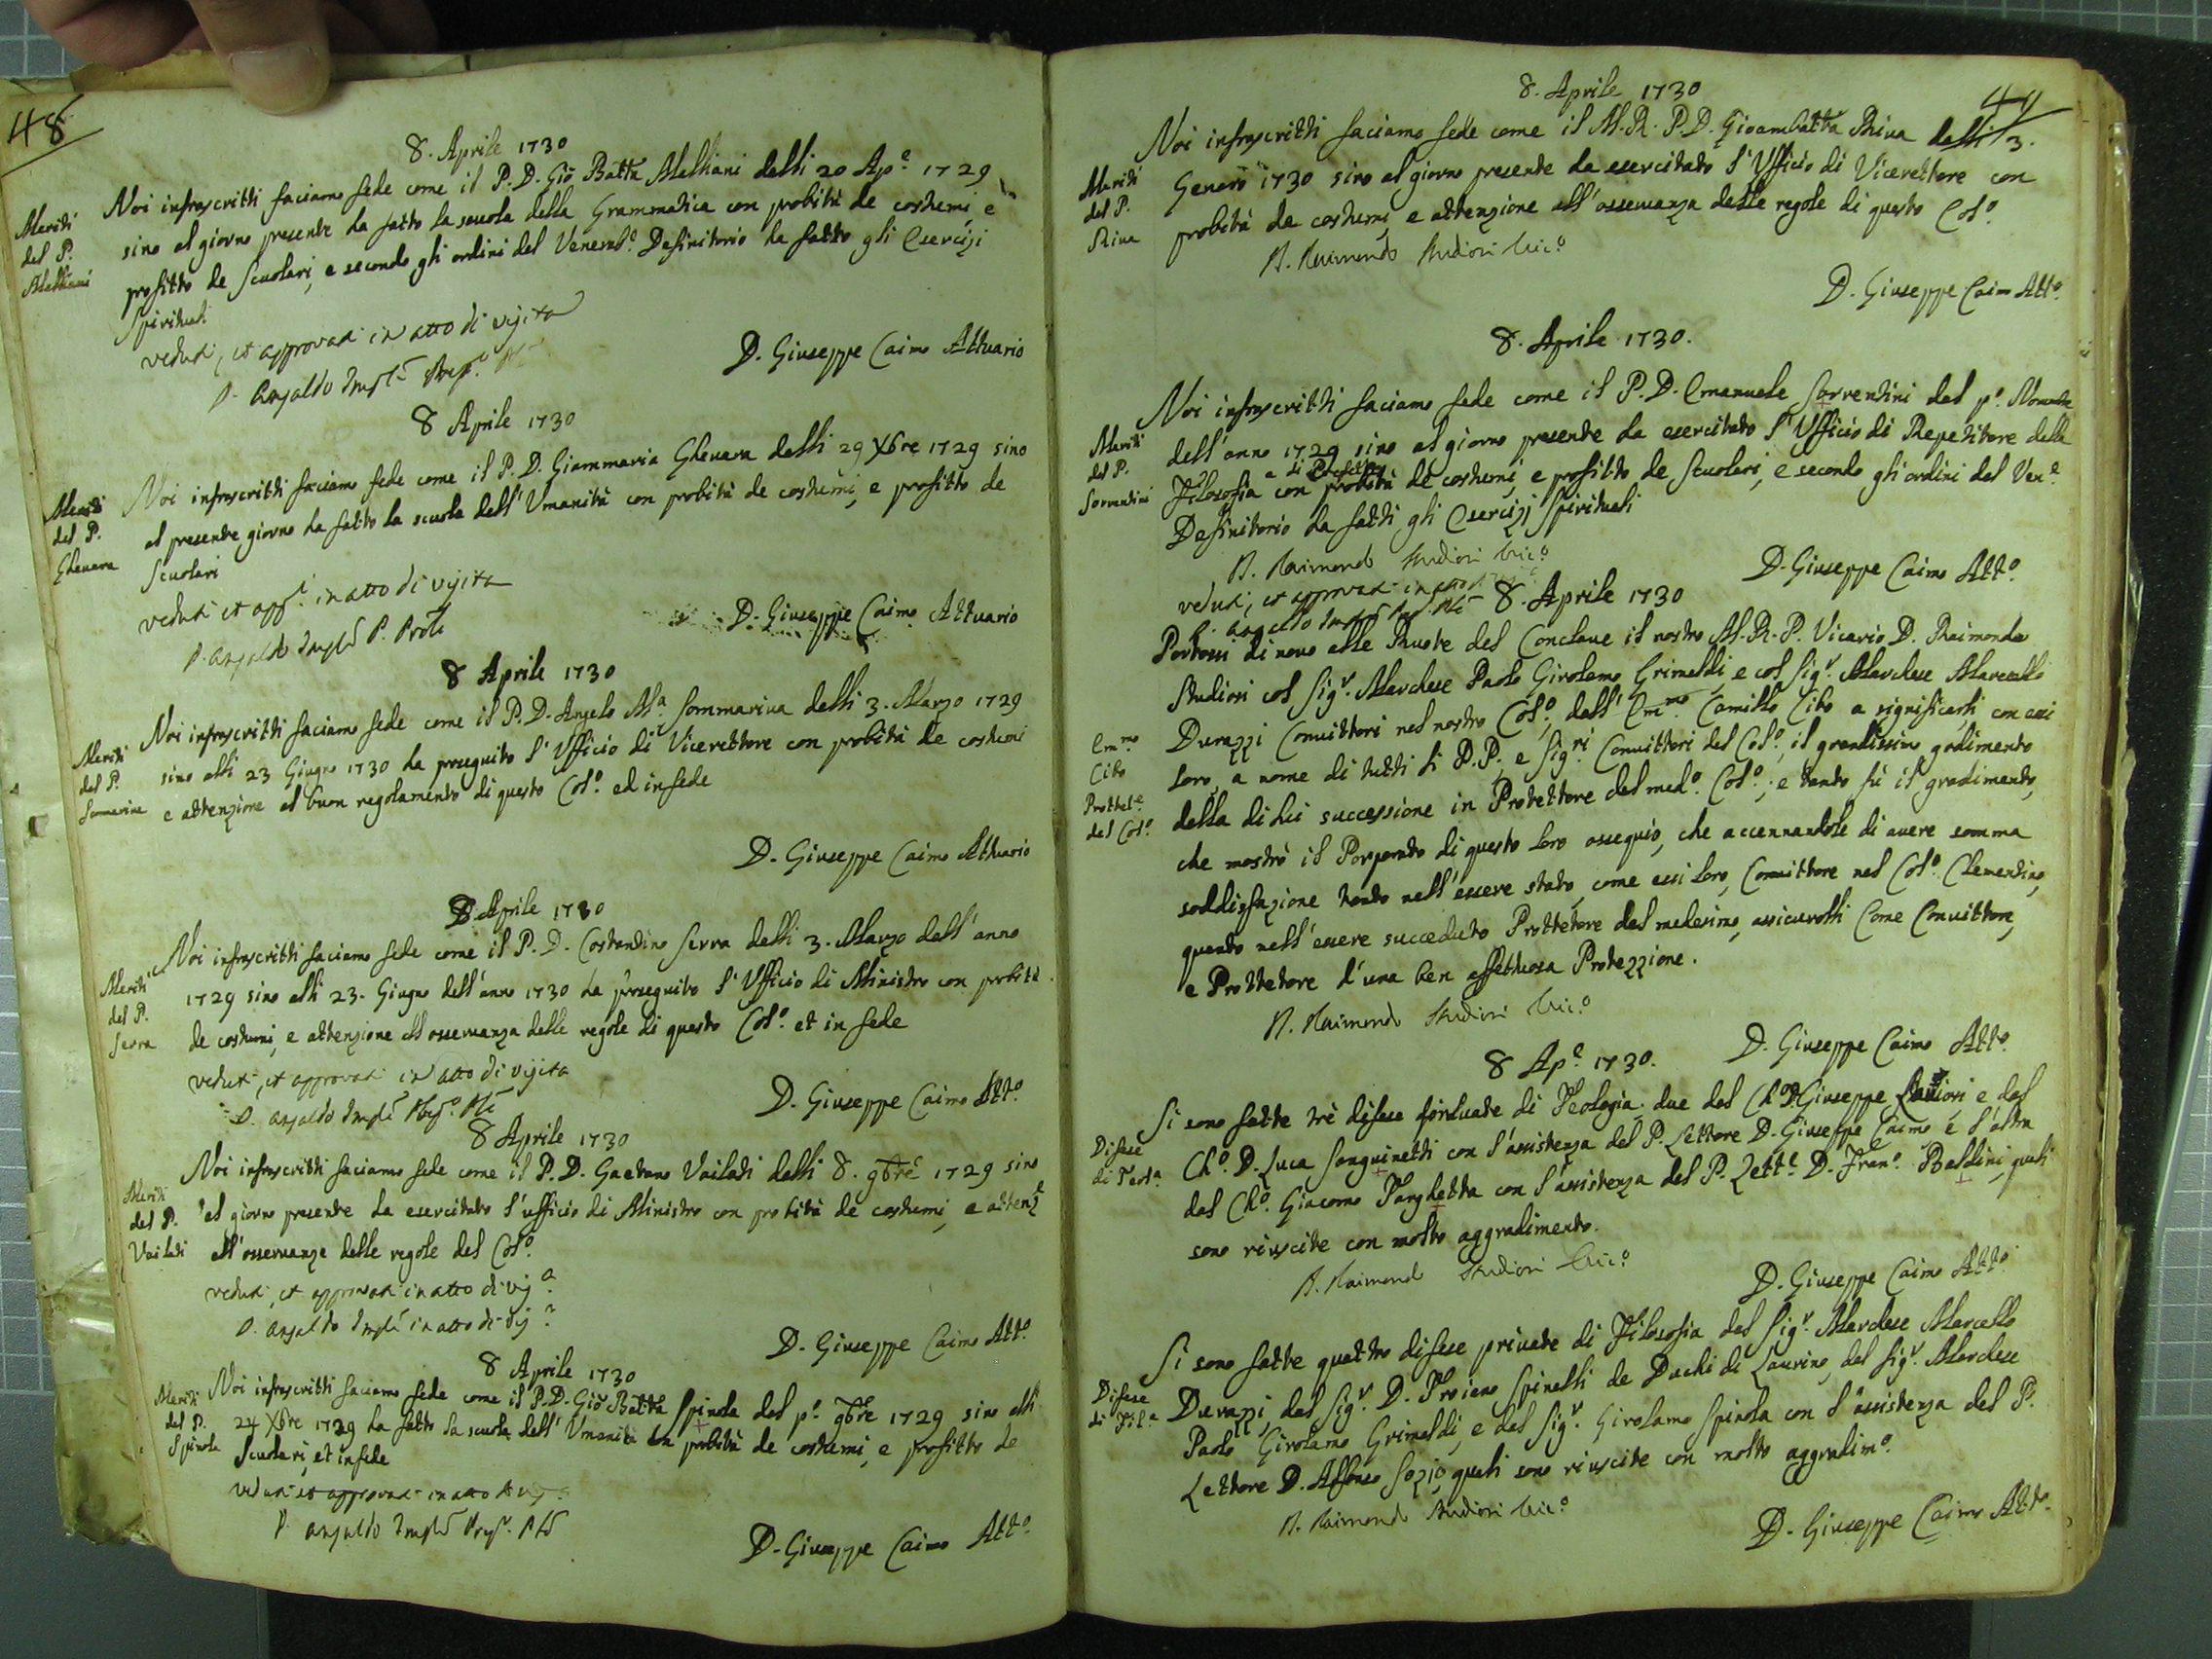 48
8. Aprile 1730
Noi infrascritti facciamo fede come il P. D. Gio Batta Melliani delli 20 Ap.e 1729
Meriti del P. Melliani
sino al giorno presente ha fatto la scuola della Grammatica con probità de costumi, e
profitto de Scuolari, e secondo gli ordini del Venerab.e Definitorio ha fatto gli Esercizi
Spirituali
veduti, et approvati in atto di visita
D. Giuseppe Caimo Attuario
8 Aprile 1730
Meriti del P. Ghevara
Noi infrascritti faciamo fede come il P. D. Giammaria Ghevara delli 29 Xbre 1729 sino
al presente giorno ha fatto la scuola dell'Umanità con probità de costumi, e profitto de
Scuolari
veduti et app.i in atto di visita
D. Giuseppe Caimo Attuario
8 Aprile 1730
Meriti del P. Sommariva
Noi infrascritti faciamo fede come il P. D. Angelo M.a Sommariva delli 3. Marzo 1729
sino alli 23 Giugno 1730 ha proseguito l'Ufficio di Vicerettore con probità de costumi
e attenzione al buon regolamento di questo Col.o ed in fede
D. Giuseppe Caimo Attuario
8. Aprile 1730
Meriti del P. Serra
Noi infrascritti faciamo fede come il P. D. Costantino Serra delli 3. Marzo dell'anno
1729 sino alli 23. Giugno dell'anno 1730 ha proseguito l'Ufficio di Ministro con probità
de costumi, e attenzione all osservanza delle regole di questo Col.o et in fede
veduti, et approvati in atto di visita
D. Giuseppe Caimo Att.o
8 Aprile 1730
Meriti del P. Vailati
Noi infrascritti faciamo fede come il P. D. Gaetano Vailati delli 8. 9bre 1729 sino
al giorno presente ha esercitato l'ufficio di Ministro con probità de costumi, e attenz.e
all'osservanza delle regole del Col.o
veduti, et approvati in atto di vis.a
D. Giuseppe Caimo Att.o
8 Aprile 1730
Meriti del P. Spinola
Noi infrascritti faciamo fede come il P. D. Gio Batta Spinola del p.o 9bre 1729 sino alli
24 Xbre 1729 ha fatto la scuola dell'Umanità con probità de costumi, e profitto de
Scuolari, et in fede
veduti et approvati in atto di
D. Giuseppe Caimo Att.o
8. Aprile 1730
Noi infrascritti faciamo fede come il M. R. P. D. Gioambatta Riva dalli 3.
Meriti del P. Riva
Genaro 1730 sino al giorno presente ha esercitato l'Ufficio di Vicerettore con
probità de costumi, e attenzione all'osservanza delle regole di questo Col.o
D. Raimondo Studiori Vic.o
D. Giuseppe Caimo Att.o
8. Aprile 1730.
Noi infrascritti faciamo fede come il P. D. Emanuele Sorrentini del p.o Novembre
Meriti del P. Sorrentini
dell'anno 1729 sino al giorno presente ha esercitato l'Ufficio di Repetitore della
Filosofia con probità de costumi, e profitto de Scuolari, e secondo gli ordini del Ven.e
Definitorio ha fatti gli Esercizj Spirituali
D. Raimondo Studiori Vic.o
D. Giuseppe Caimo Att.o
veduti, et approvati in atto
8. Aprile 1730
Portossi di novo alle Ruote del Conclave il nostro M. R. P. Vicario D. Raimondo
Studiori col Sig.r Marchese Paolo Girolamo Grimaldi, e col Sig.r Marchese Marcello
Em.mo Cibo Prottet.e del Col.o
Durazzi Convittori nel nostro Col.o, dall'Em.mo Camillo Cibo a significarli con essi
loro, a nome di tutti li P.P. e Sig.ri Convittori del Col.o, il grandissimo godimento
della di lui successione in Protettore del med.o Col.o; e tanto fù il gradimento,
che mostrò il Porporato di questo loro ossequio, che accennandole di avere somma
soddisfazione tanto nell'essere stato, come essi loro, Convittore nel Col.o Clementino,
quanto nell'essere succeduto Prottetore del medesimo, assicurolli Come Convittore,
e Prottetore d'una ben affettuosa Protezzione.
D. Raimondo Studiori Vic.o
D. Giuseppe Caimo Att.o
8 Ap.e 1730.
Difese di Teol.a
Si sono fatte trè difese di Teologia due dal Ch.o D. Giuseppe e dal
Ch.o D. Luca Sanguinetti con l'assistenza del P. Lettore D. Giuseppe Caimo e l'altra
dal Ch.o Giacomo Targhetta con l'assistenza del P. Lett.e D. Fran.o Baldini, quali
sono riuscite con molto aggradimento.
D. Raimondo Studiori Vic.o
D. Giuseppe Caimo Att.o
Difese di Fil.a
Si sono fatte quattro difese private di Filosofia dal Sig.r Marchese Marcello
Durazzi, dal Sig.r D. Troiano Spinelli de Duchi di Laurino, dal Sig.r Marchese
Paolo Girolamo Grimaldi, e dal Sig.r Girolamo Spinola con l'assistenza del P.
Lettore D. Alfonso Sozio, quali sono riuscite con molto aggradim.o
D. Raimondo Studiori Vic.o
D. Giuseppe Caimo Att.o